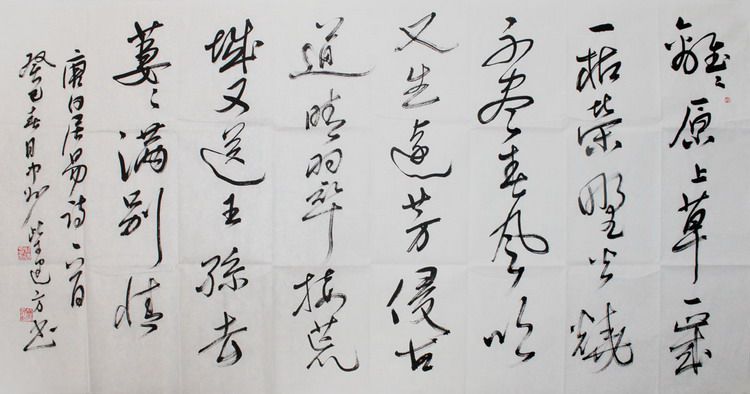 離〻原上草一歲
一枯榮野火燒
不盡春風吹
又生遠芳侵古
道晴翠接荒
城又送王孫去
萋〻滿別情
唐白居易詩一首
癸巳春月中州柴建方书